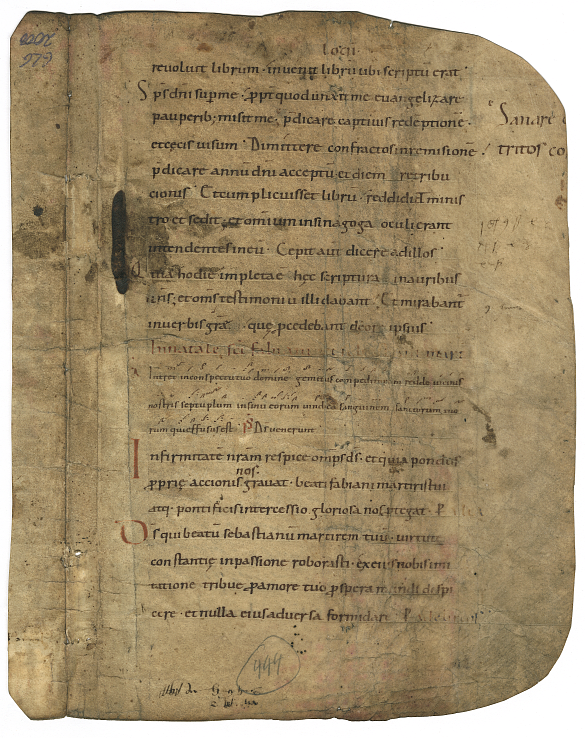 reuoluit librum · inuenit librū ubi scriptū erat
Sps dñi sup me · ꝓpt quod unxit me euangelizare
pauperib; misit me · p̄dicare captiuis redēptionē ·
et cęcis uisum · Dimittere confractos in remissionē
Sanare
tritos co
p̄dicare annū dñi acceptū et diem retribu
cionis Et cum plicuisset librū · reddidit minis
tro et sedit · et om̄ium in sinagoga oculi erant
intendentes in eū · Cepit aut̄ dicere ad illos
quia hodie impleta ē hęc scriptura in auribus
uris; et om̄s testimoniū illi dabant · Et mirabant̄
in uerbis gr̄ę quę pcedebant de ore ipsius
In natale sc̄i fabiani
Intret in conspectu tuo domine gemitus compeditorum redde uicinis
nostris septuplum in sinu eorum uindica sanguinem sanctorum tuo
rum qui effusus est · Ps Ds uenerunt
Infirmitatē nr̄am respice omps ds̄ · et quia pondus
nos
ꝓprię accionis grauat · beati fabiani martiris tui
atq; pontificis intercessio gloriosa nos ꝓtegat · P
Ds qui beatū sebastianū martirem tuū uirtute
constantię in passione roborasti · ex eius nobis imi
tatione tribue ꝓ amore tuo ꝓspera mundi despi
cere · et nulla eius aduersa formidare P
499